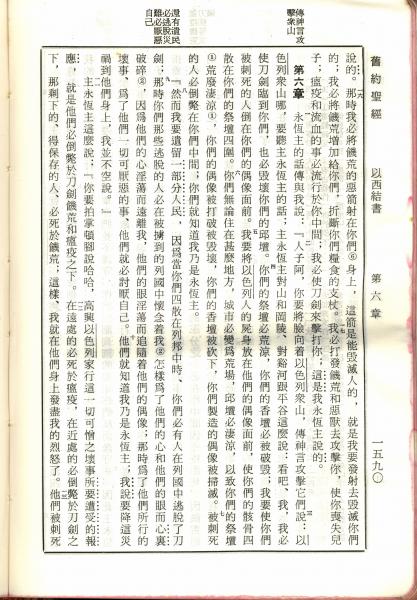 舊約聖經 以西結書 第六章 一五九〇
說的。那時我必將饑荒的惡箭射在你們身上，這箭是能毀滅人的，就是我要發射去毀滅你們
的；我必將饑荒增加給你們，折斷你們糧食的支杖。我必打發饑荒和惡獸去攻擊你，使你喪失兒
子；瘟疫和流血的事必流行於你中間；我必使刀劍來擊打你；這是我永恆主說的。
傳神言攻
擊衆山
第六章
永恆主的話傳與我說：「人子阿，你要將臉向着以色列衆山，傳神言攻擊它們說：以
色列衆山哪，要聽主永恆主的話；主永恆主對山和岡陵、對谿河跟平谷這麼說：看吧，我，我必
使刀劍臨到你們，也必毀壞你們的邱壇。你們的祭壇必荒涼，你們的香壇必被破毀；我要使你們
被刺死的人倒在你們的偶像面前。我要將以色列人的屍身放在他們的偶像面前，使你們的骸骨四
散在你們的祭壇四圍。你們無論住在甚麼地方，城市必變爲荒場，邱壇必淒涼，以致你們的祭壇
荒廢淒涼，你們的偶像被打破被毀壞，你們的香壇被砍下，你們製造的偶像被掃滅。被刺死
的人必倒斃在你們中間；你們就知道我乃是永恆主。
還有遺民
必逃脫災
難必厭惡
自己
『然而我要遺留一部分人民，因爲當你們四散在列邦中時、你們必有人在列國中逃脫了刀
劍；那時你們那些逃脫的人必在被擄到的列國中懷念着我怎樣爲了他們的心和他們的眼而心裏
破碎，因爲他們的心淫蕩而遠離我，他們的眼淫蕩而追隨着他們的偶像；那時爲了他們所行的
壞事、爲了他們一切可厭惡的事、他們就必討厭自己。他們就知道我乃是永恆主；我說要降這災
禍到他們身上，我並不空說。』
主永恆主這麼說：「你要拍掌頓腳說哈哈，高興以色列家行這一切可憎之壞事所要遭受的報
應，就是他們必倒斃於刀劍饑荒和瘟疫之下。在遠處的必死於瘟疫，在近處的必倒斃於刀劍之
下、那剩下的、得保存的人、必死於饑荒；這樣、我就在他們身上發盡我的烈怒了。他們被刺死